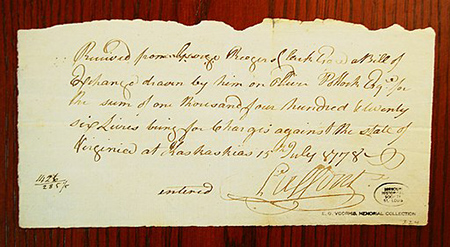 Received from George Rogers Clark Esqr a Bill of
Exchange drawn by him on Oliver Pollock Esqr for
the sum of one thousand four hundred & twenty
six Livers being for Charges against the state of
Virginia at Kaskaskias 15th July 1778
1426
entered
MISSOURI HISTORICAL SOCIETY ST. LOUIS
E. G. VOORHIS, MEMORIAL COLLECTION